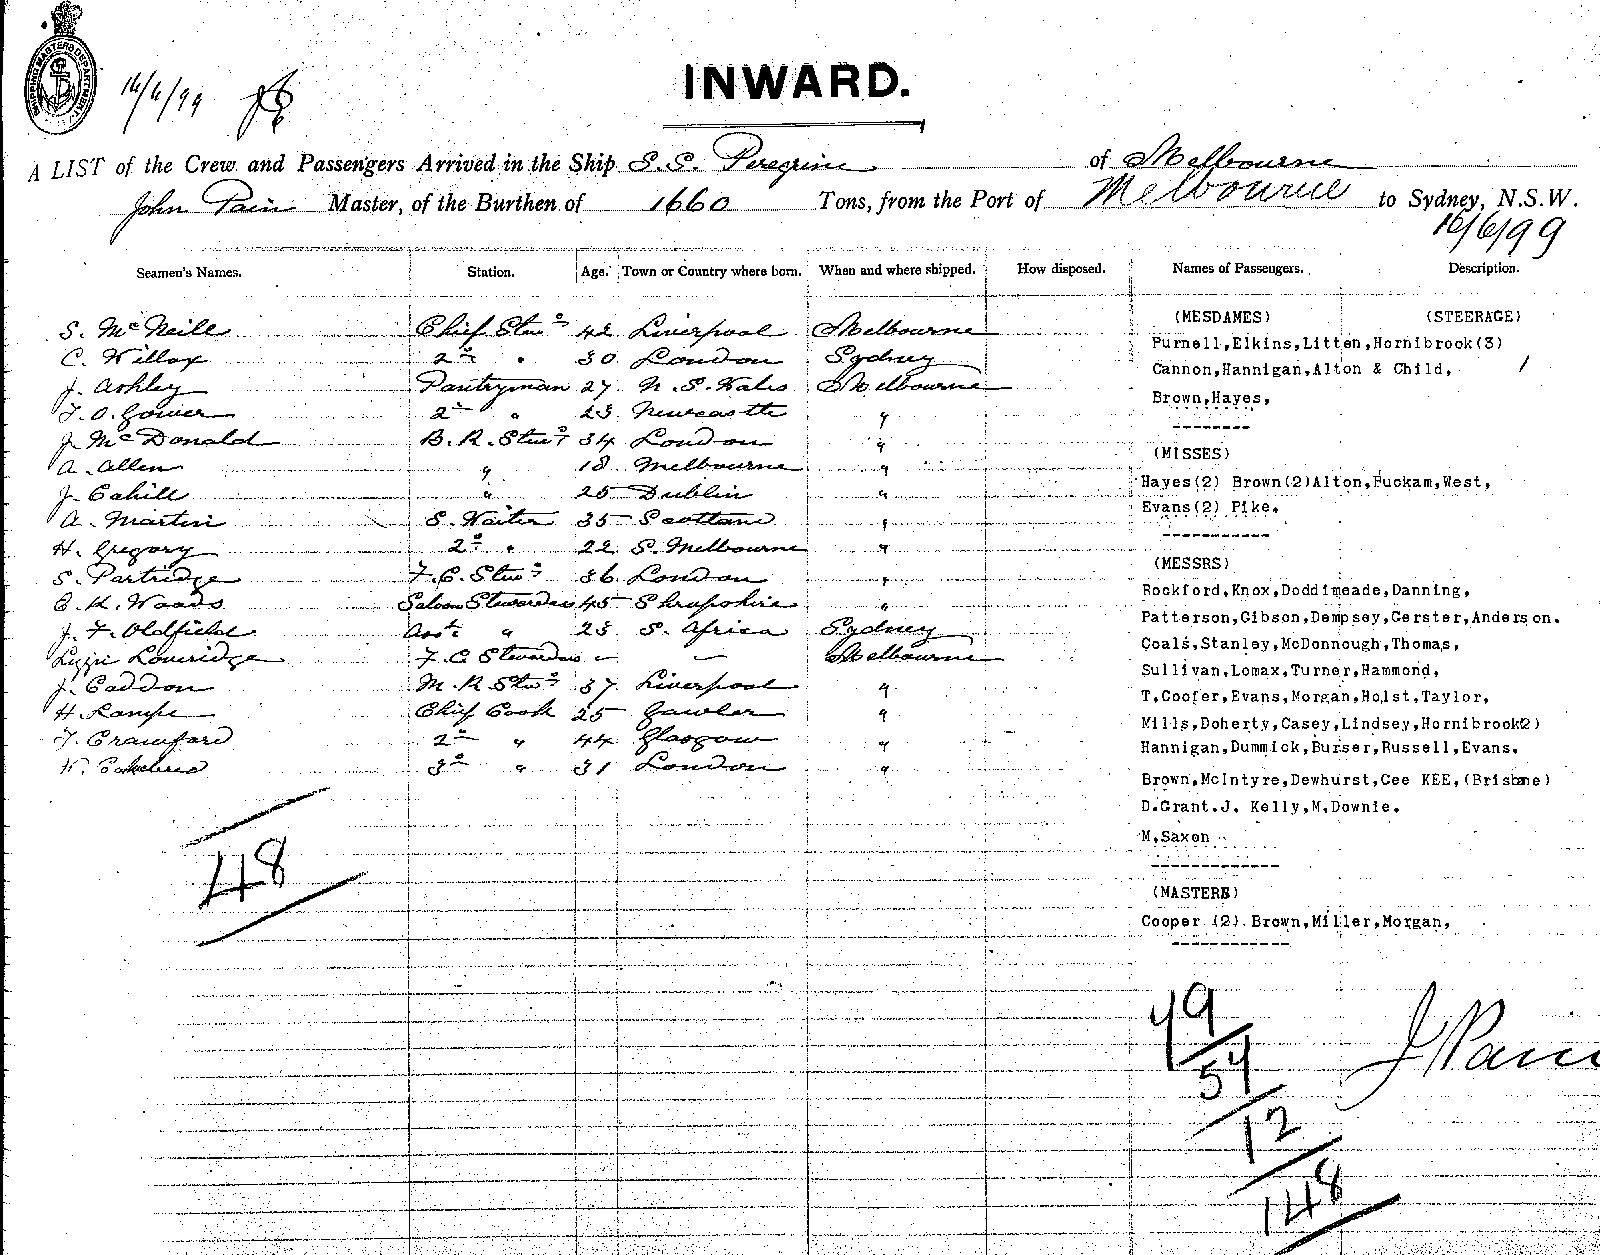 16/6/99
INWARD.
A LIST of the Crew and Passengers Arrived in the Ship S.S. Peregrine of Melbourne
John Pain Master, of the Burthen of 1660 Tons, from the Port of Melbourne to Sydney, N.S.W.
16/6/99
Seamen's Names. Station. Age. Town or Country where born. When and where shipped. How disposed. Names of Passengers. Description.
(MESDAMES) (STEERAGE)
S. McNeill Chief Stwd 42 Liverpool Melbourne
Purnell,Elkins,Litten,Hornibrook(3)
C. Willox 2nd " 30 London Sydney
Cannon,Hannigan,Alton & Child,
J. Ashley Pantryman 27 N. S. Wales Melbourne
Brown,Hayes,
T. O. Gower 2nd " 23 Newcastle "
J. McDonald B. R. Stwd 34 London "
(MISSES)
A. Allen " 18 Melbourne "
Hayes(2) Brown(2)Alton,Puckam,West,
J. Cahill " 25 Dublin "
Evans(2) Pike.
A. Martin S. Waiter 35 Scotland "
H. Gregory 2nd " 22 S. Melbourne "
(MESSRS)
S. Partridge F. C. Stwd 36 London "
Rockford,Knox,Doddimeade,Danning,
E. K. Woods Saloon Stewardess 45 Shropshire "
Patterson,Gibson,Dempsey,Gerster,Anderson.
J. F. Oldfield Asst " 23 S. Africa Sydney
Coals,Stanley,McDonnough,Thomas,
Lizzie Loveridge F. C Stewardess - - Melbourne
Sullivan,Lomax,Turner,Hammond,
J. Caddon M. R Stwd 37 Liverpool "
T.Coofer,Evans,Morgan,Holst,Taylor,
H. Rampe Chief Cook 25 Gawler "
Mills,Doherty,Casey,Lindsey,Hornibrook2)
T. Crawford 2nd " 44 Glasgow "
Hannigan,Dummick,Burser,Russell,Evans.
W. 3rd " 31 London "
Brown,McIntyre,Dewhurst,Gee KEE,(Brisbane)
D.Grant.J. Kelly,M.Downie.
M.Saxon
48
(MASTERS)
Cooper (2) Brown,Miller,Morgan,
49
54
12
148
J Pain